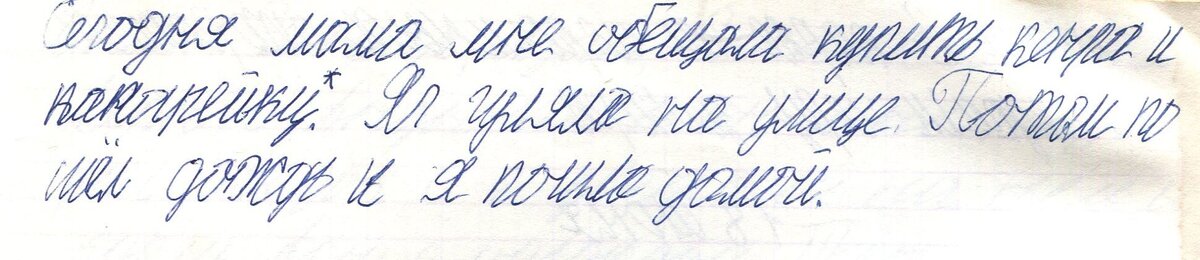 Сегодня мама мне обещала купить кенра и
канарейку.* Я гуляла на улице. Потом по
шёл дождь и я пошла домой.